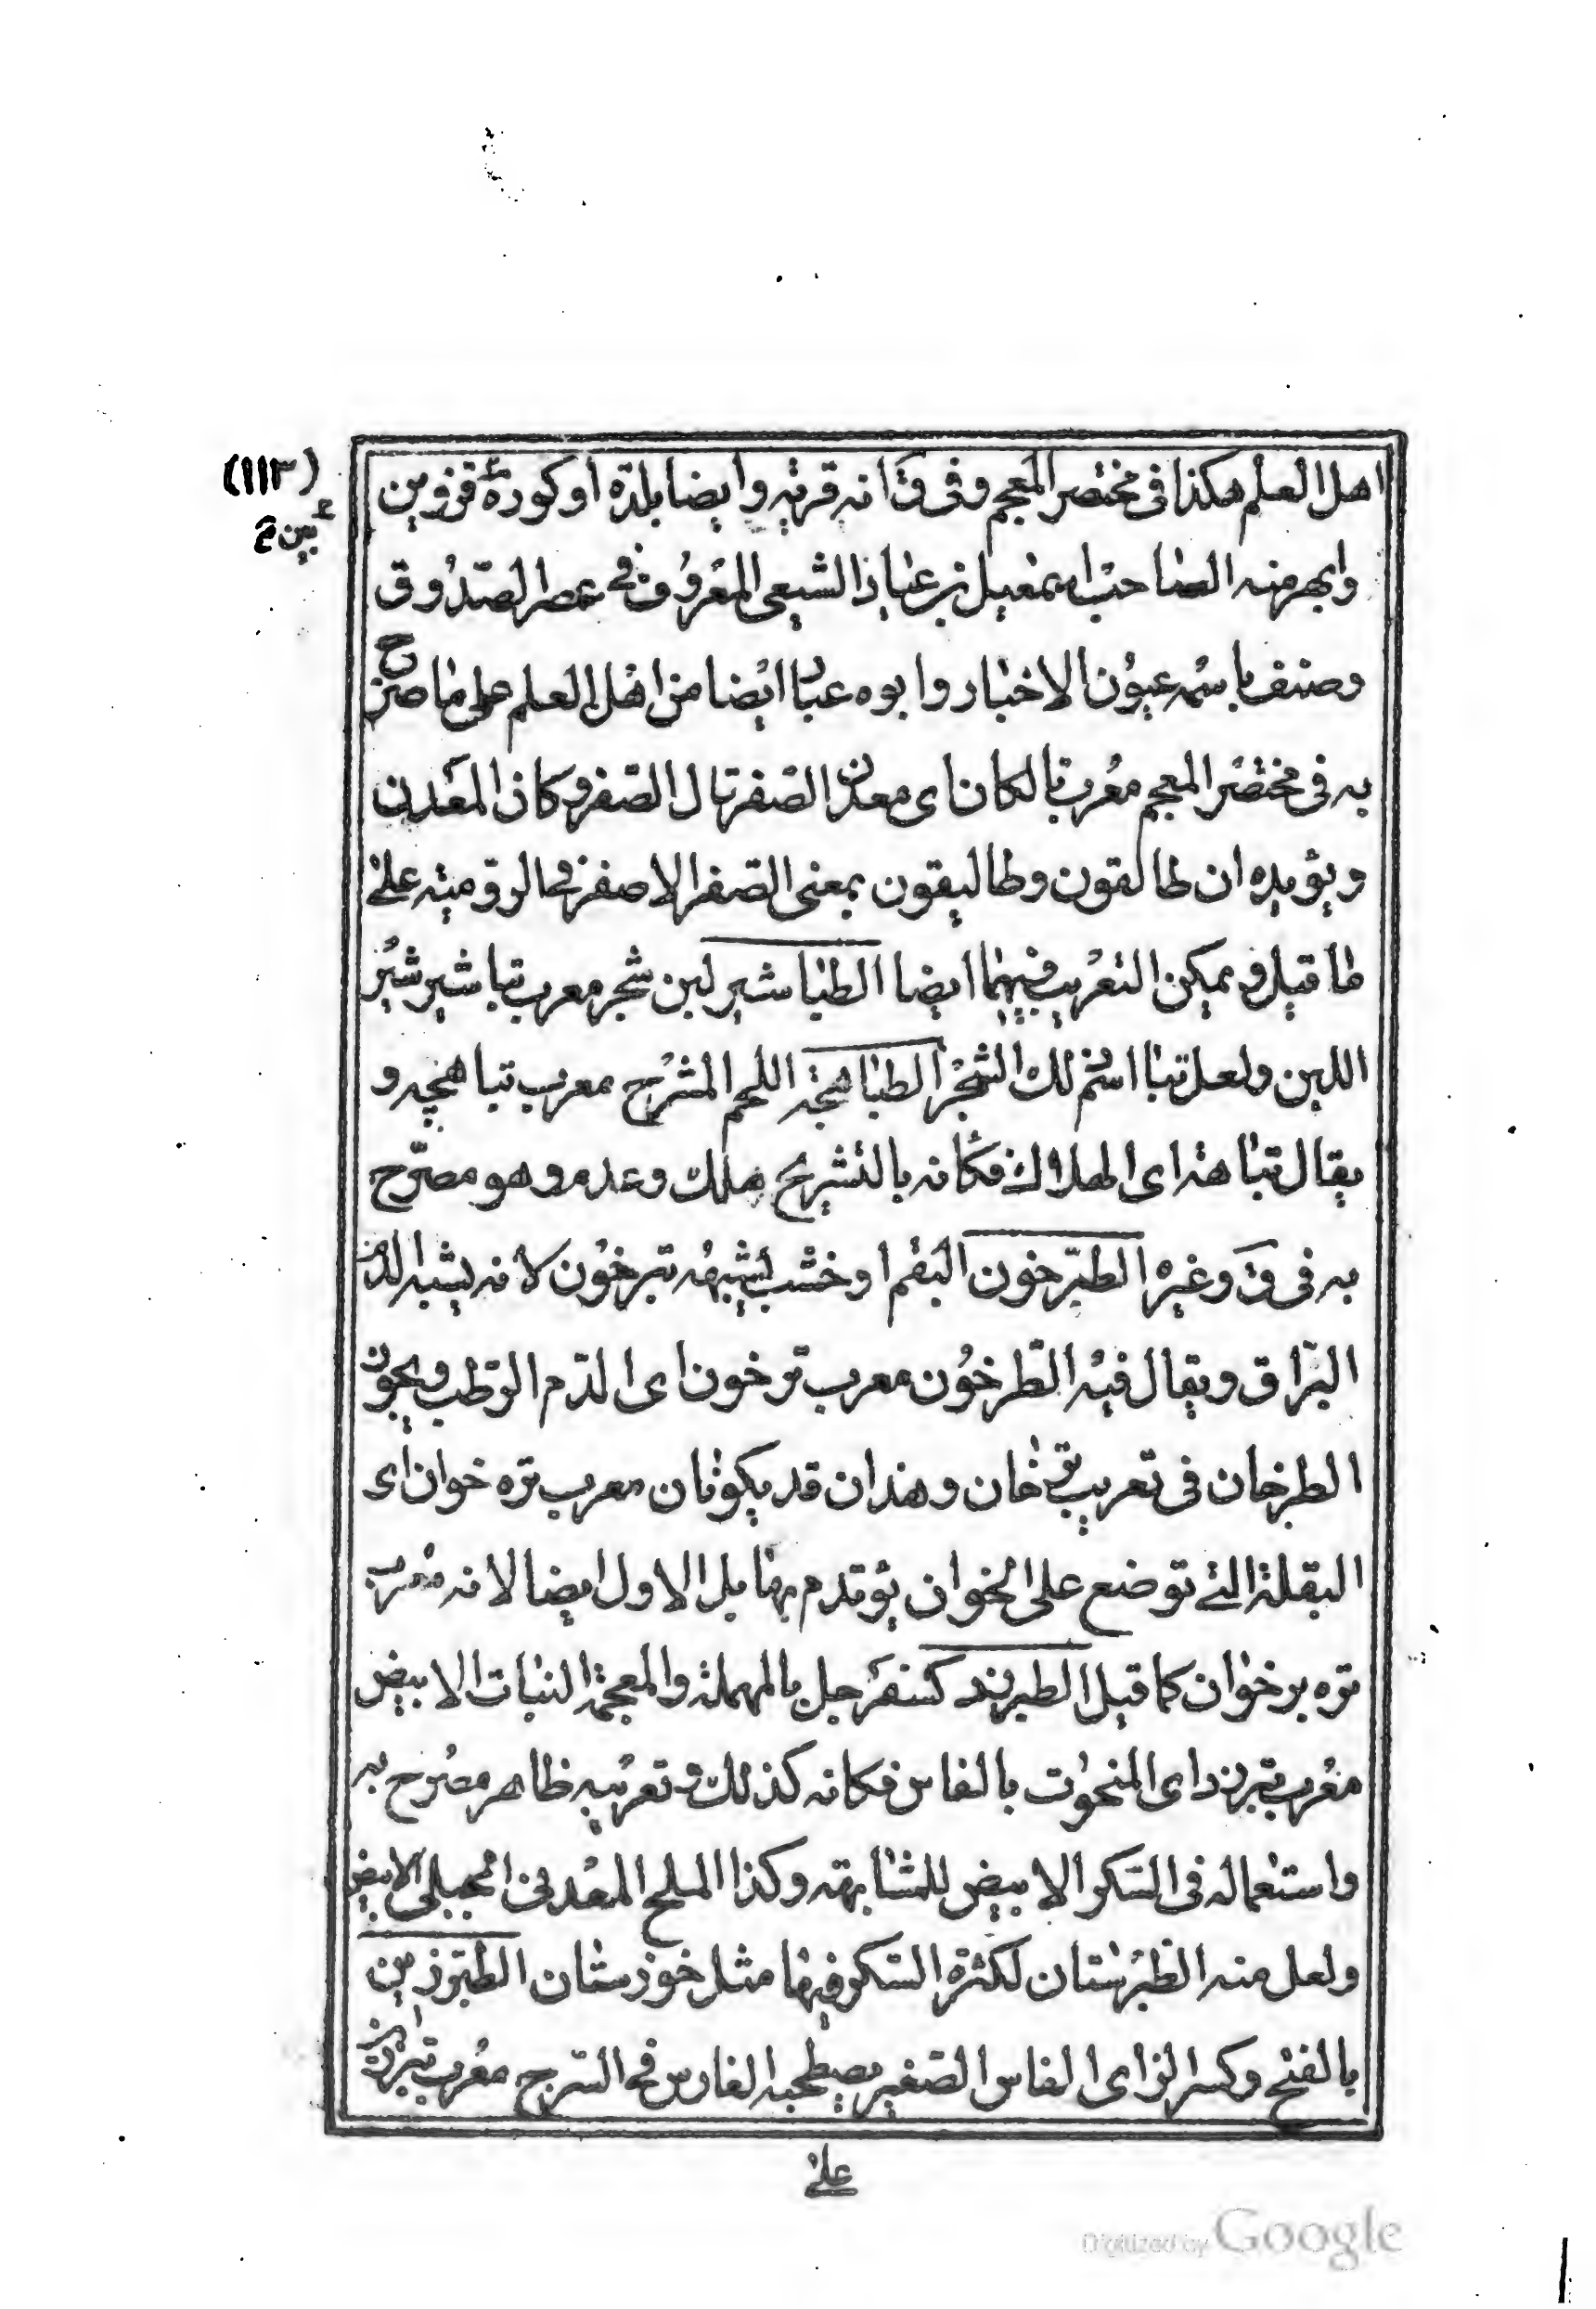 (١١٣)
بين ح
اهل العلم هكذا فى مختصر المعجم وفى ق انه قرية وايضا بلدة او كورة قزوين
وابهر منه الصاحب اسمعيل بن عباد الشيعى المعروف فى عصر الصدوق
وصنف باسمه عيون الاخبار وابوه عباد ايضا من اهل العلم على ما صرح
به فى مختصر المعجم معرب تالكان اى معدن الصفر تال الصفر وكان المعدن
ويؤيده ان طالقون وطاليقون بمعنى الصفر الاصفر فى الرومية على
ما قيل ويمكن التعريب فيهما ايضا الطباشير لبن شجر معرب تباشير شير
اللبن ولعل تبا اسم لك الشجر الطباهجة اللحم المشرح معرب تباهچه و
يقال تباهه اى الهلاك فكانه بالتشريح هلك وعدم وهو مصرح
به فى ق وغيره الطبرخون البقم او خشب يشبهه تبرخون لانه يشبه الدم
البراق ويقال فيه الطرخون معرب ترخون اى الدم الرطب ويجوز
الطرخان فى تعريب ترخان وهذان قد يكونان معرب تره خوان اى
البقلة التى توضع على الخوان يؤتدم بها بل الاول ايضا لانه معرب
تره بر خوان كما قيل الطبرزد كسفرجل بالمهملة والمعجمة النبات الابيض
معرب تبرزد اى المنحوت بالفاس فكانه كذلك و تعريبه ظاهر مصرح به
واستعماله فى السكر الابيض للمشابهة وكذا الملح المعدنى الجبلى الابيض
ولعل منه الطبرستان لكثرة السكر فيها مثل خوزستان الطبرزين
بالفتح وكسر الزاى الفاس الصغير يصطحبه الفارس فى السرج معرب تبرزين
على
Digitized by Google